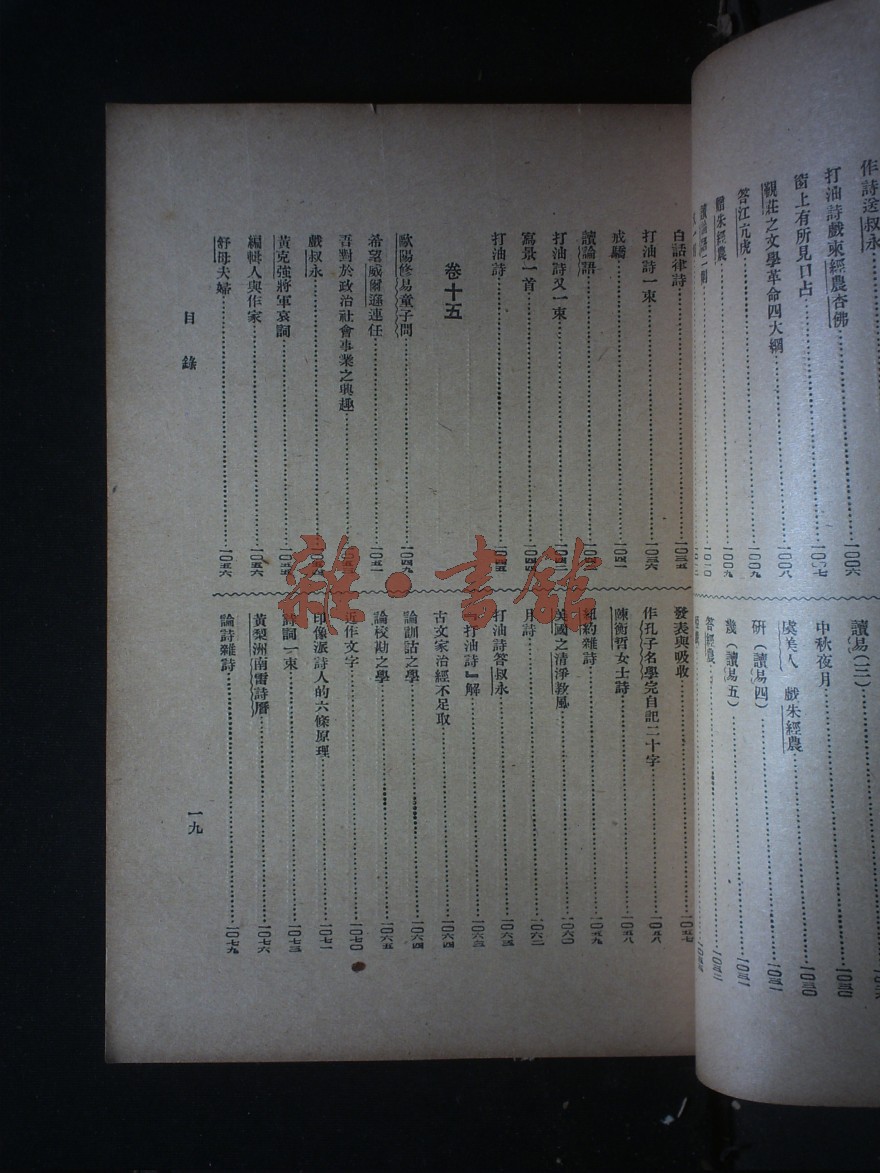 作詩送叔永
一〇〇六
打油詩戲柬經農杏佛
一〇〇七
窗上有所見口占
一〇〇八
覲莊之文學革命四大綱
一〇〇八
答江亢虎
一〇〇九
贈朱經農
一〇〇九
讀易(三)
一〇三〇
中秋夜月
一〇三〇
虞美人 戲朱經農
一〇三一
研(讀易四)
一〇三一
幾(讀易五)
一〇三二
答經農
白話律詩
一〇三五
打油詩一束
一〇三六
戒驕
一〇四一
讀論語
打油詩又一束
一〇四四
寫景一首
一〇四四
打油詩
一〇四五
卷十五
歐陽修易童子問
一〇四九
希望威爾遜連任
一〇五一
吾對於政治社會事業之興趣
戲叔永
黃克強將軍哀詞
一〇五五
編輯人與作家
一〇五六
舒母夫婦
一〇五六
發表與吸收
一〇五七
作孔子名學完自記二十字
一〇五八
陳衡哲女士詩
一〇五八
紐約雜詩
一〇五九
美國之清淨教風
一〇六〇
月詩
一〇六二
打油詩答叔永
一〇六三
『打油詩』解
一〇六三
古文家治經不足取
一〇六四
論訓詁之學
一〇六四
論校勘之學
一〇六五
近作文字
一〇七〇
印像派詩人的六條原理
一〇七一
詩詞一束
一〇七三
黃梨洲南雷詩曆
一〇七六
論詩雜詩
一〇七九
目錄
一九
雜·書館